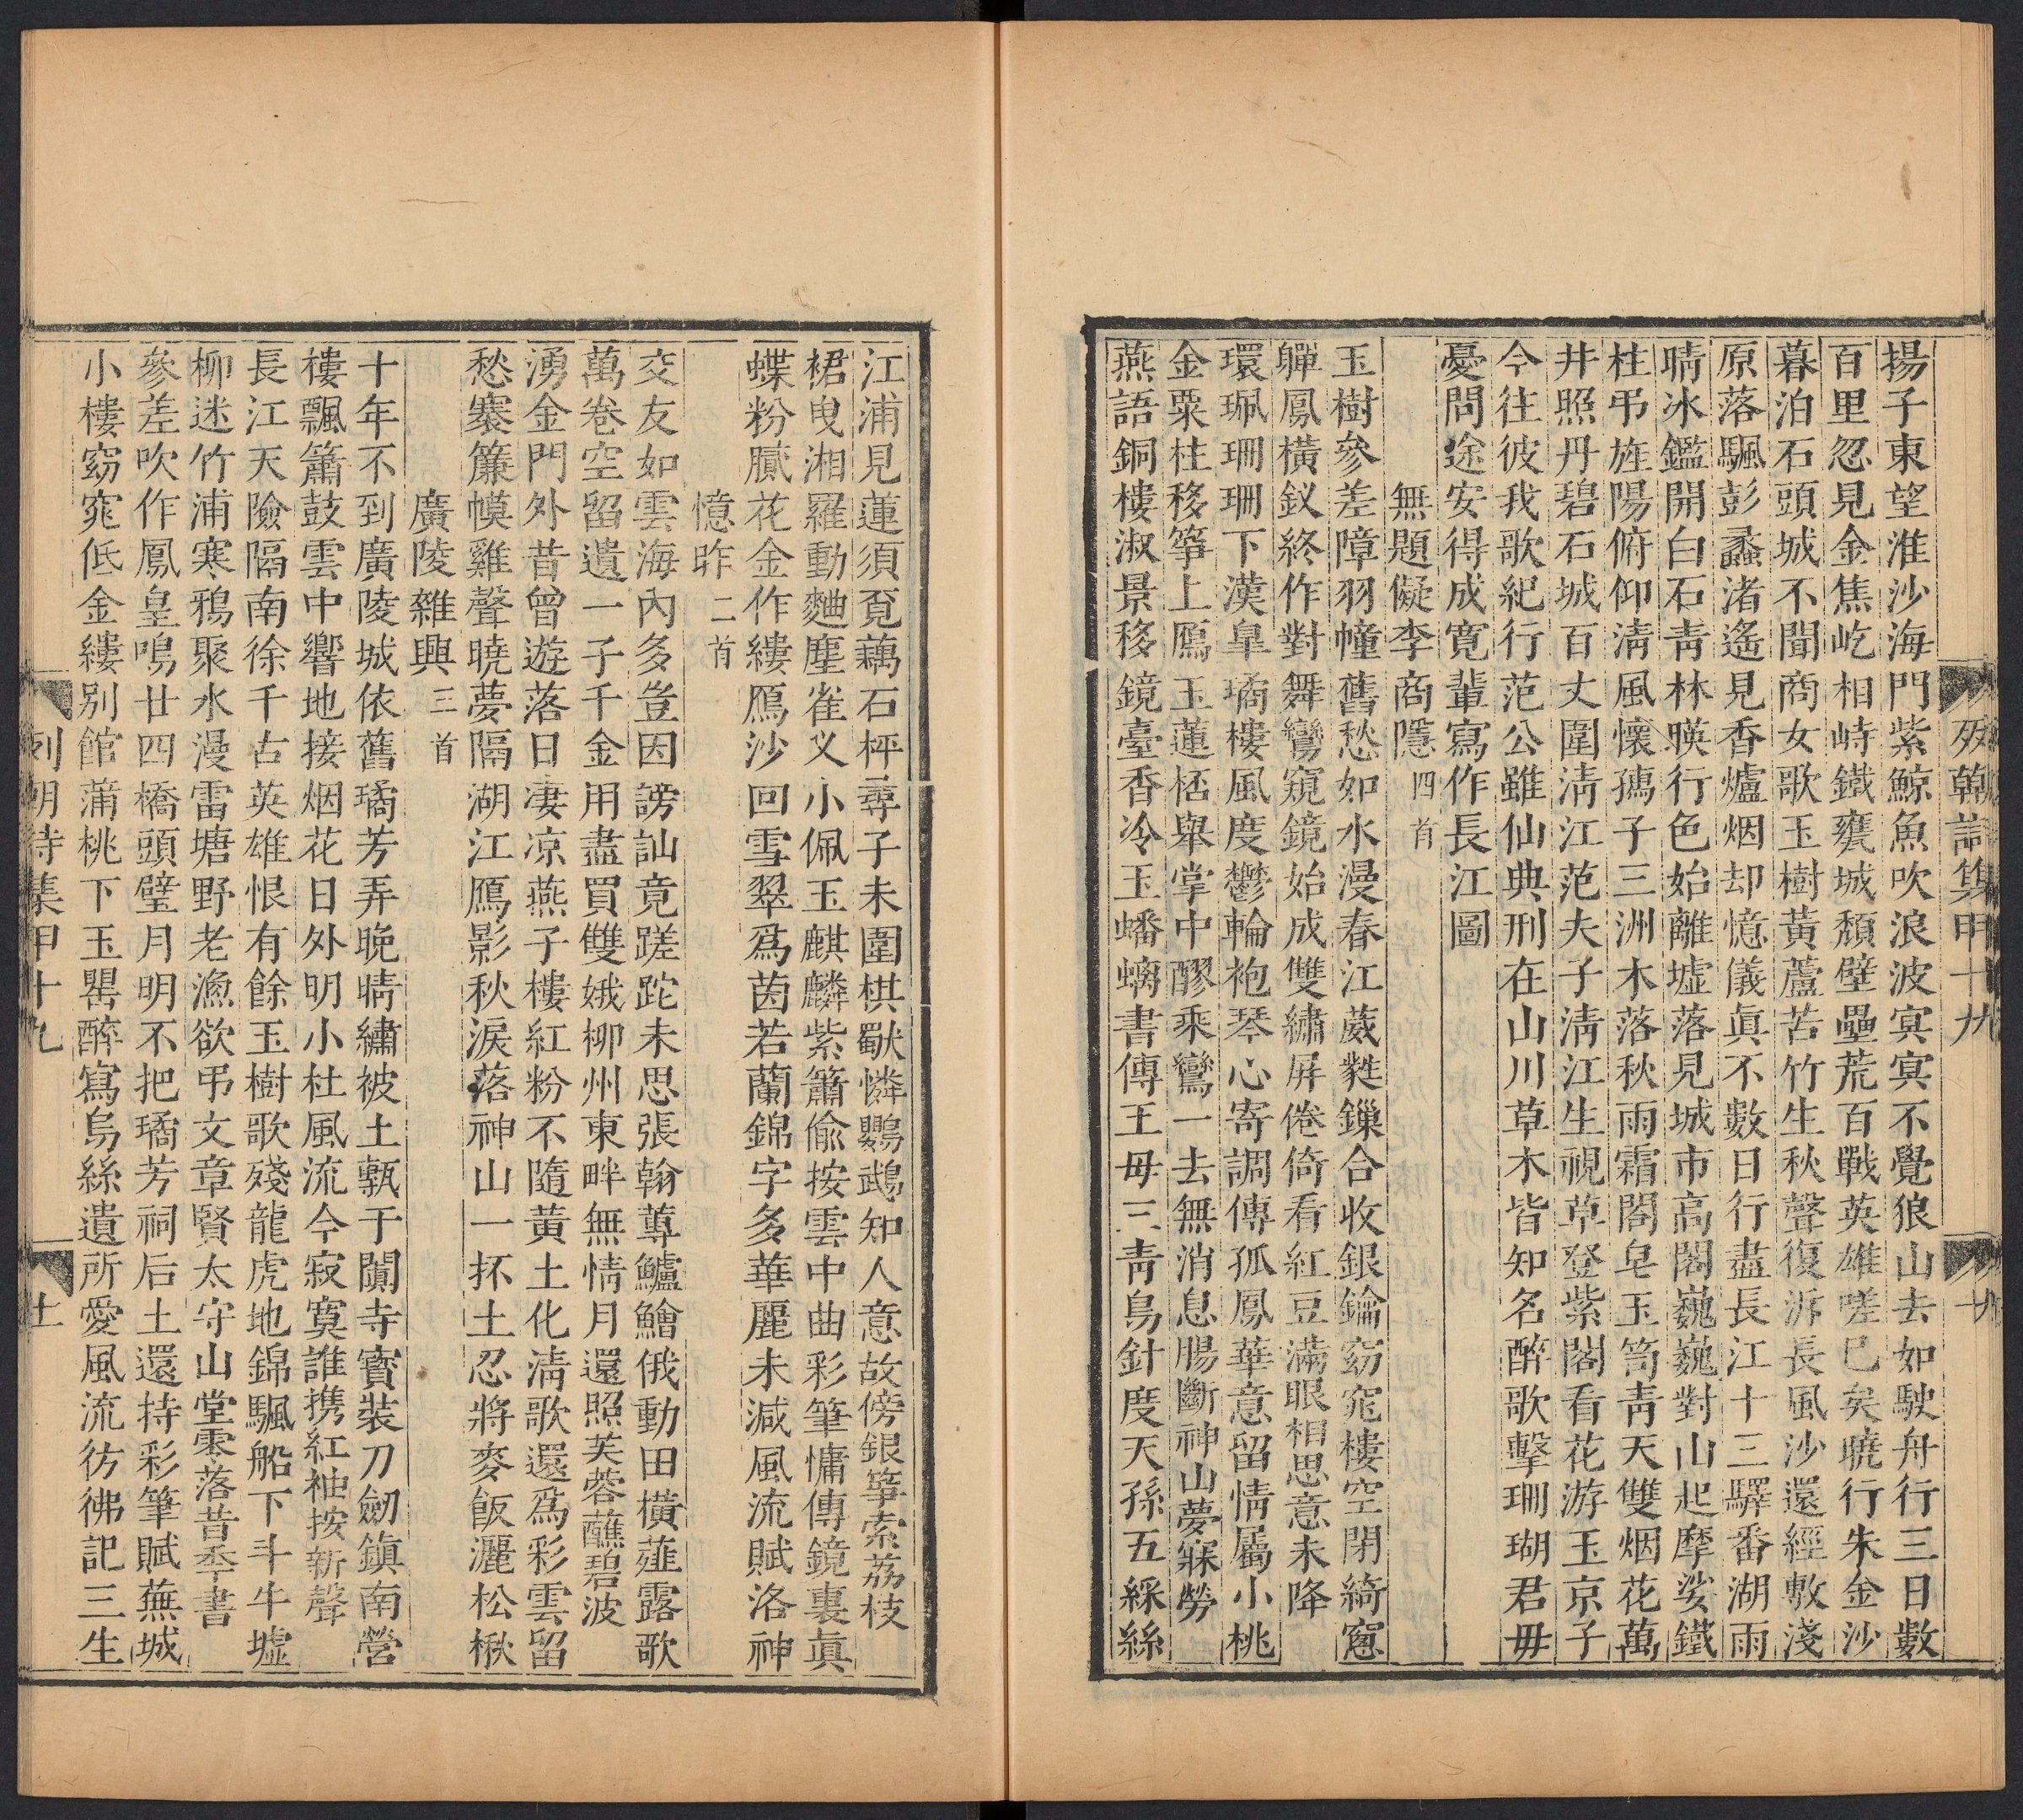 揚子東望淮沙海門紫鯨魚吹浪波寞寞不覺狼山去如駛舟行三日數
百里忽見金焦屹相峙鐵甕城頹壁壘荒百戰英雄嗟已矣曉行朱金沙
暮泊石頭城不聞商女歌玉樹黃蘆苦竹生秋聲復泝長風沙還經敷淺
原落颿彭蠡渚遙見香爐烟却憶儀眞不數日行盡長江十三驛番湖雨
晴冰鑑開白石青林暎行色始離墟落見城市高閣巍巍對山起摩娑鐵
柱弔旌陽俯仰淸風懷孺子三洲木落秋雨霜閤皂玉笥靑天雙烟花萬
井照丹碧石城百丈圍淸江范夫子淸江生視草登紫閣看花游玉京子
今往彼我歌紀行范公雖仙典刑在山川草木皆知名醉歌擊珊瑚君毋
憂問途安得成寬輩寫作長江圖
無題儗李商隱四首
玉樹參差障羽幢舊愁如水漫春江葳蕤鏁合收銀鑰窈窕樓空閉綺窻
軃鳳橫釵終作對舞鸞窺鏡始成雙繡屏倦倚看紅豆滿眼相思意未降
環珮珊珊下漢皐璚樓風度鬱輪袍琴心寄調傳孤鳳華意留情屬小桃
金粟柱移箏上鴈玉蓮桮舉掌中醪乘鸞一去無消息腸斷神山夢寐勞
燕語銅樓淑景移鏡臺香冷玉蟠螭書傳王毋三靑鳥針度天孫五綵絲
江浦見蓮須覔藕石枰尋子未圍棋歇憐鸚鵡知人意故傍銀箏索荔枝
裙曳湘羅動麯塵雀义小佩玉麒麟紫簫偸按雲中曲彩筆慵傳鏡裏眞
蝶粉膩花金作縷鴈沙回雪翠爲茵若蘭錦字多華麗未減風流賦洛神
憶昨二首
交友如雲海內多豈因謗訕竟蹉跎未思張翰蓴鱸鱠俄動田橫薤露歌
萬卷空留遺一子千金用盡買雙娥柳州東畔無情月還照芙蓉蘸碧波
湧金門外昔曾遊落日淒凉燕子樓紅粉不隨黃土化淸歌還爲彩雲留
愁褰簾幙雞聲曉夢隔湖江鴈影秋淚落神山一抔土忍將麥飯灑松楸
廣陵雜興三首
十年不到廣陵城依舊璚芳弄晚晴繡被土甎于闐寺寶裝刀劒鎭南營
樓飄簫鼓雲中響地接烟花日外明小杜風流今寂寞誰携紅袖按新聲
長江天險隔南徐千古英雄恨有餘玉樹歌殘龍虎地錦颿船下斗牛墟
柳迷竹浦寒鴉聚水漫雷塘野老漁欲弔文章賢太守山堂零落昔秊書
參差吹作鳳皇鳴廿四橋頭璧月明不把璚芳祠后土還持彩筆賦蕪城
小樓窈窕低金縷別館蒲桃下玉罌醉寫烏絲遺所愛風流彷彿記三生
列朝詩集甲十九
十